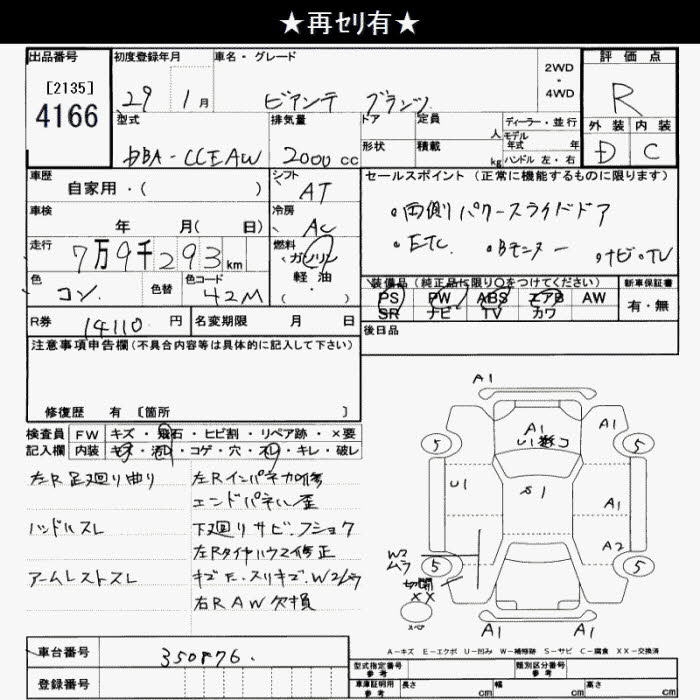 ★再ｾﾘ有★
出品番号
[2135]
4166
初度登録年月
29 1月
車名・グレード
ビアンテ グランツ
2WD
・
4WD
評価点
R
外装 内装
D C
型式
DBA-CCEAW
排気量
2000 cc
ドア
形状
定員
人
積載
kg
ディーラー・並行
モデル
年式 年
ハンドル 左・右
車歴
自家用・( )
シフト
AT
車検
年 月( 日)
冷房
AC
走行
7万9千293km
燃料
ガソリン
軽・油
・( )
色
コン
色替
色コード
42M
R券
14110 円
名変期限 月 日
セールスポイント (正常に機能するものに限ります)
・両側パワースライドドア
・ETC ・Bモニター ・ナビ・TV
装備品(純正品に限り○をつけてください)
PS PW ABS エアB AW
SR ナビ TV カワ
新車保証書
有・無
後日品
注意事項申告欄(不具合内容等は具体的に記入して下さい)
修復歴 有 [箇所 ]
検査員 FW キズ・飛石・ヒビ割・リペア跡・×要
記入欄 内装 キズ・汚レ・コゲ・穴・スレ・キレ・破レ
左R足廻り曲り
ハンドルスレ
アームレストスレ
左Rインパネカ修
エンドパネル歪
下廻りサビ.フショク
左Rタイヤハウス修正
キズ E.スリキズ.W2ムラ
右RAW欠損
A1
A1
U1 数コ
A1
5
5
U1
S1
A1
W2
ムラ
A2
5
5
切開
XX
スペア
A1
A1
A－キズ E－エクボ U－凹み W－補修跡 S－サビ C－腐食 XX－交換済
車台番号
350876.
登録番号
型式指定番号
参考
類別区分番号
参考
車庫証明用
参考
長さ cm
幅 cm
高さ cm